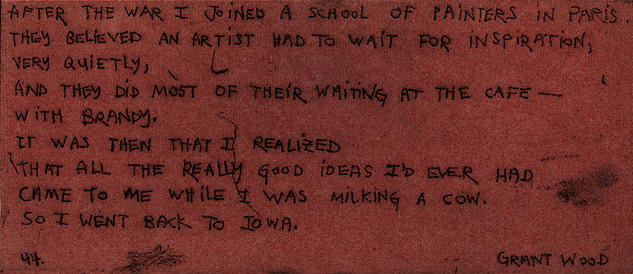 AFTER THE WAR I JOINED A SCHOOL OF PAINTERS IN PARIS.
THEY BELIEVED AN ARTIST HAD TO WAIT FOR INSPIRATION,
VERY QUIETLY,
AND THEY DID MOST OF THEIR WAITING AT THE CAFE —
WITH BRANDY.
IT WAS THEN THAT I REALIZED
THAT ALL THE REALLY GOOD IDEAS I'D EVER HAD
CAME TO ME WHILE I WAS MILKING A COW.
SO I WENT BACK TO IOWA.
44. GRANT WOOD